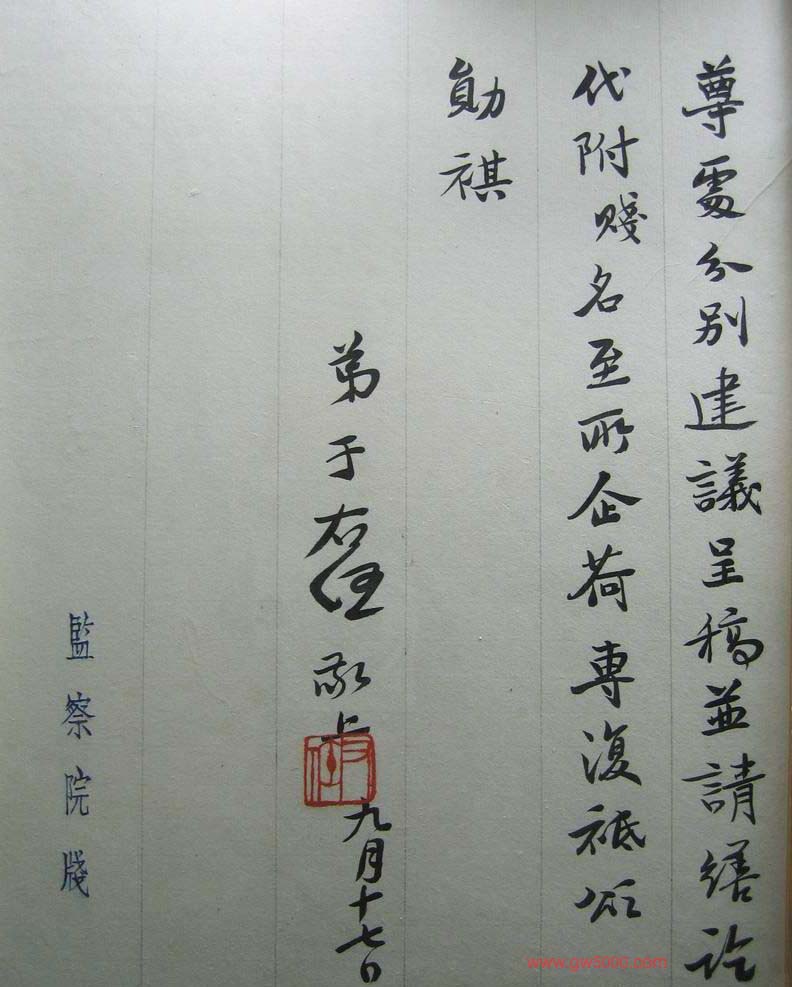 尊處分別建議呈稿並請繕訖
代附賤名至所企荷專復祗頌
勛祺
弟于右任敬上
九月十七日
監察院牋
www.gw500c.com